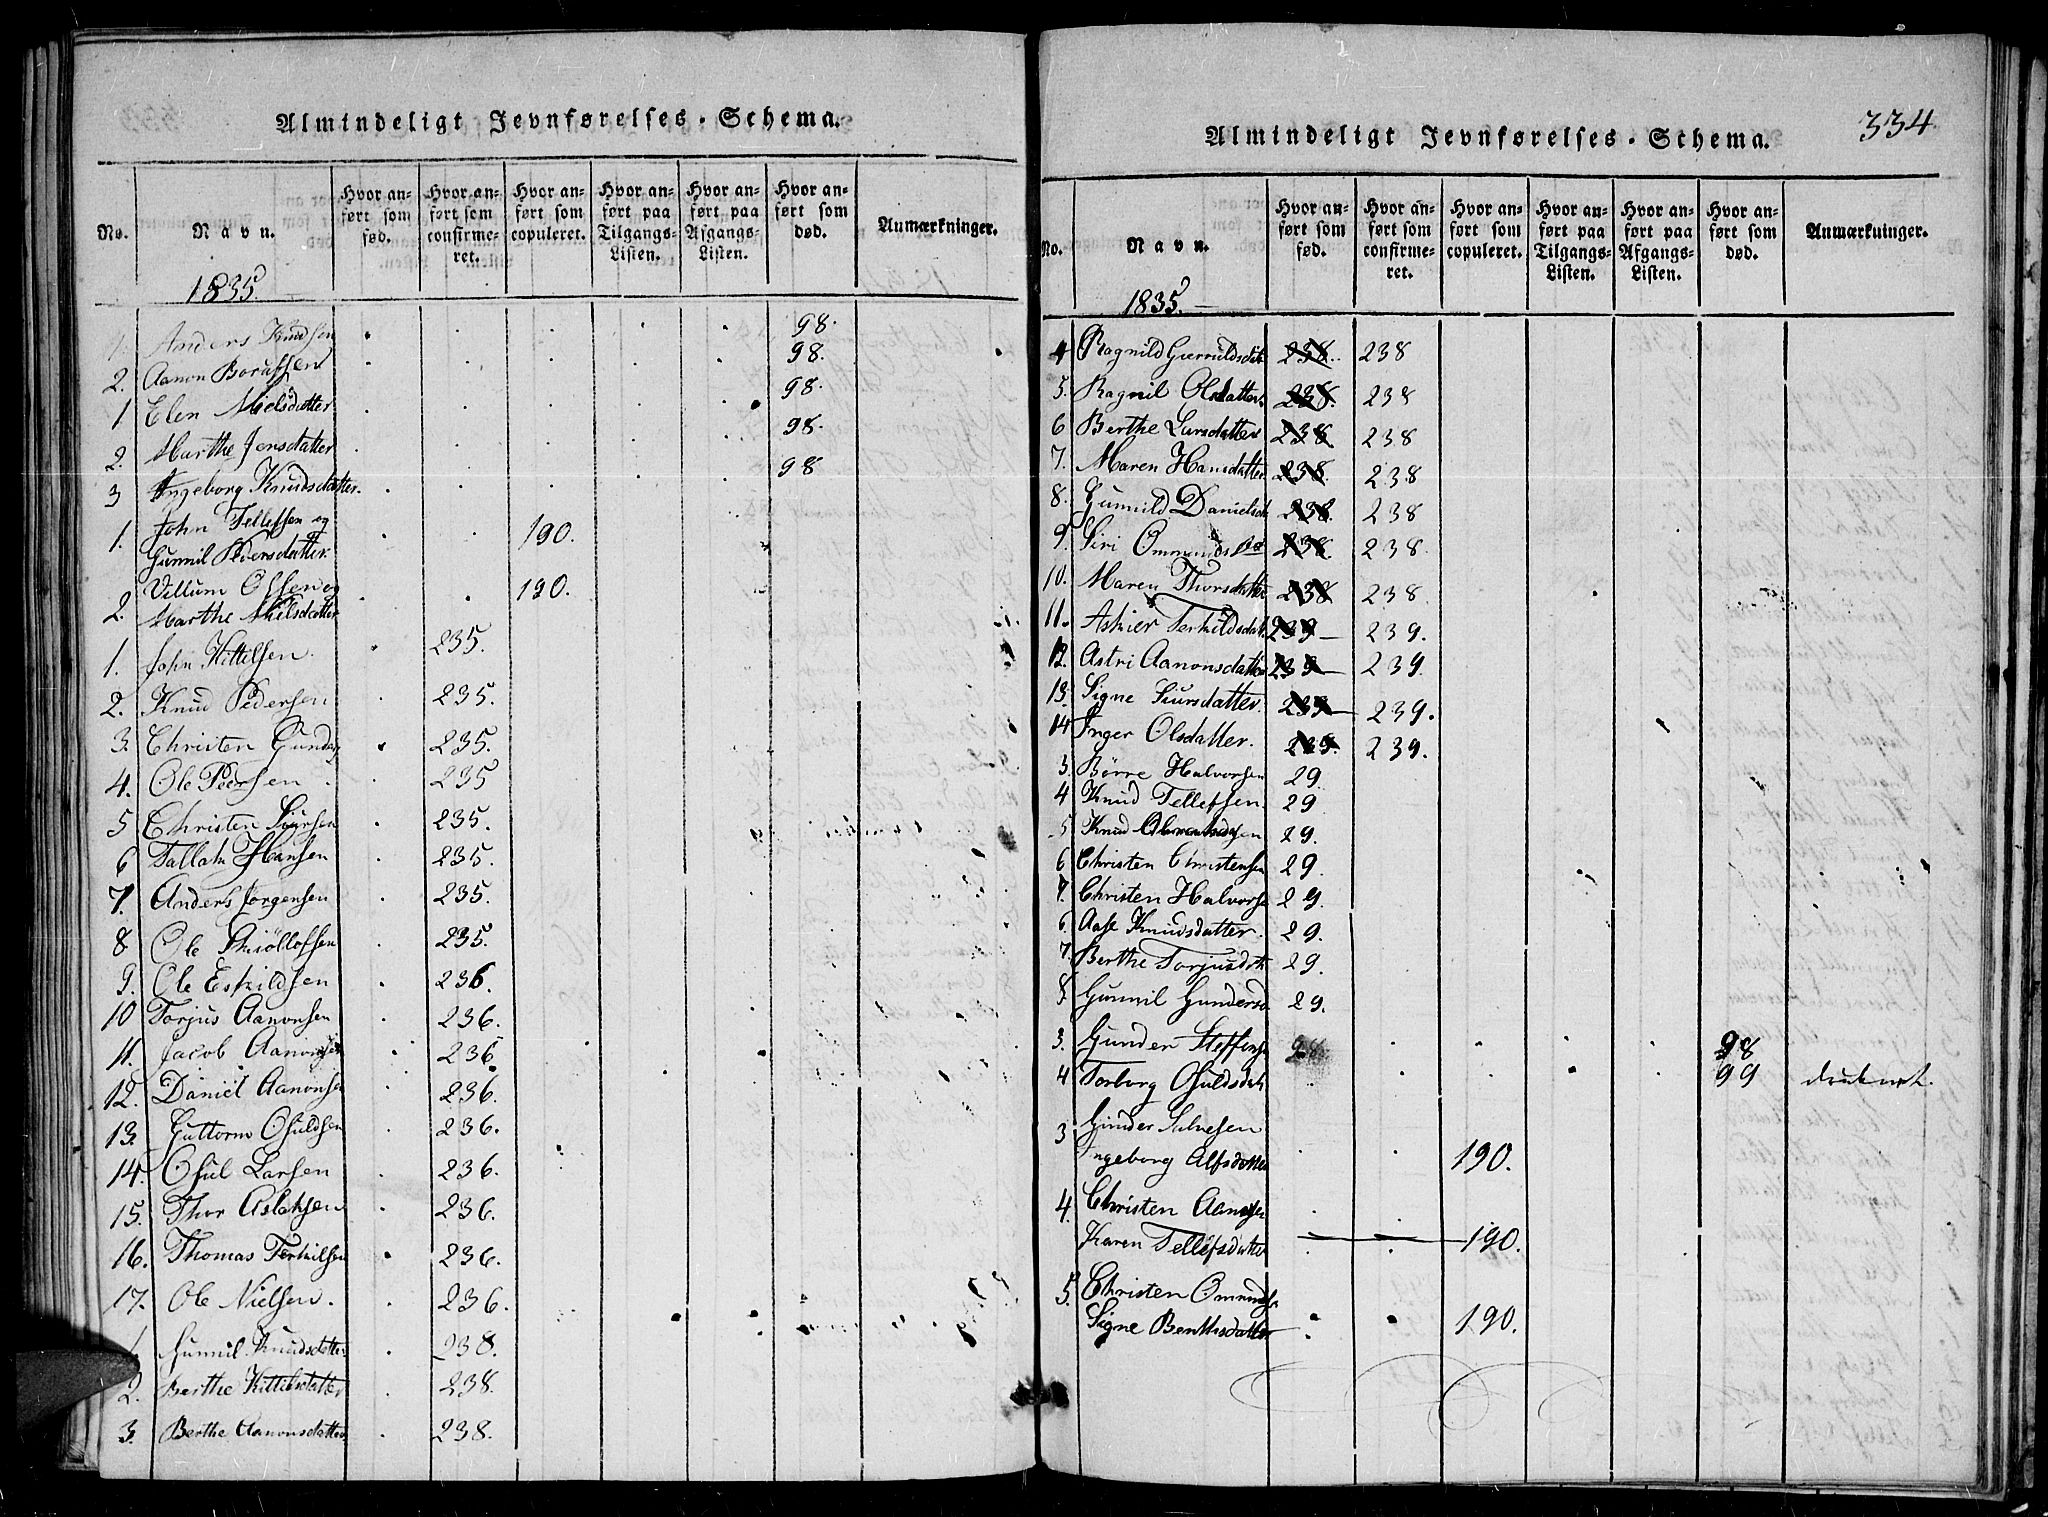 Almindeligt Jevnførelses-Schema.
No.
Navn.
Hvor an-
ført som
fød.
Hvor an-
ført som
confirme-
ret.
Hvor an-
ført som
copuleret.
Hvor an-
ført paa
Tilgangs-
Listen.
Hvor an-
ført paa
Afgangs-
Listen.
Hvor an-
ført som
død.
Anmærkninger.
1835.
1. Anders Knudsen 98.
2. Aanon 98.
1 Elen Nielsdatter 98.
2. Marthe Jensdatter 98.
3 Ingeborg Knudsdatter. 98
1. John Tellefsen og
Gunnil Pedersdatter. 190.
2. Villum Olsen og
Marthe Nielsdatter 190.
1. John Kittelsen. 235.
2. Knud Pedersen 235.
3. Christen 235.
4. Ole Peersen 235
5 Christen Siursen 235.
6 Tallak Hansen 235.
7. Anders Jørgensen 235.
8 Ole 235.
9. Ole Eskildsen 236.
10 Torjus Aanonsen 236.
11. Jacob Aanonsen 236.
12. Daniel Aanonsen 236.
13. Guttorm Osuldsen 236.
14. Osul Larsen 236.
15. Thor Aslaksen 236.
16. Thomas Terkilsen 236.
17. Ole Nielsen. 236.
1. Gunnil Knudsdatter 238.
2. Berthe Kittelsdatter 238.
3. Berthe Aanonsdatter 238.
334.
Almindeligt Jevnførelses-Schema.
No.
Navn.
Hvor an-
ført som
fød.
Hvor an-
ført som
confirme-
ret.
Hvor an-
ført som
copuleret.
Hvor an-
ført paa
Tilgangs-
Listen.
Hvor an-
ført paa
Afgangs-
Listen.
Hvor an-
ført som
død.
Anmærkninger.
1835.
4 Ragnild 238. 238
5. Ragnil Olsdatter. 238. 238
6 Berthe Larsdatter 238 238
7. Maren Hansdatter 238. 238
8. Gunnild Danielsdt 238. 238
9. Siri 238. 238.
10. Maren Thorsdatter 238 238.
11. Terkildsdatt. 239 239.
12. Astri Aanonsdatter 239 239.
13. Signe Siursdatter. 239 239.
14 Inger Olsdatter. 239. 239.
3. Børre Halvorsen 29.
4 Knud Tellefsen. 29
5 Knud 29.
6 Christen Christensen 29.
7. Christen Halvorse 29.
6. Aase Knudsdatter. 29.
7. Berthe Torjusdtt 29.
8. Gunnil Gundersd 29.
3. Gunder Steffense 28 98
4 Torborg Osuldsdatt 99
3 Gunder Salvesen
Ingeborg Alfsdatter 190.
4. Christen
Karen Tellefsdatter 190.
5. Christen
Signe 190.